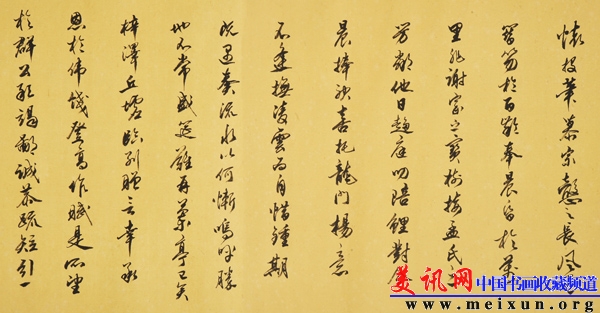 懷投筆慕宗愨之長風
簪笏於百齡奉晨昏於萬
里非謝家之寶樹接孟氏之
芳鄰他日趨庭叨陪鯉對今
晨捧袂喜托龍門楊意
不逢撫凌雲而自惜鍾期
既遇奏流水以何慚嗚呼勝
地不常盛筵難再蘭亭已矣
梓澤丘墟臨別贈言幸承
恩於偉餞登高作賦是所望
於群公敢竭鄙誠恭疏短引一
美讯网
中国书画收藏频道
www.meixun.org